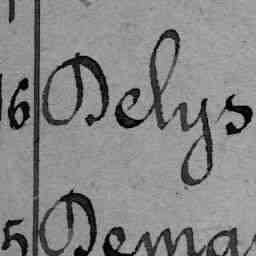 6 Delys
5 Dema